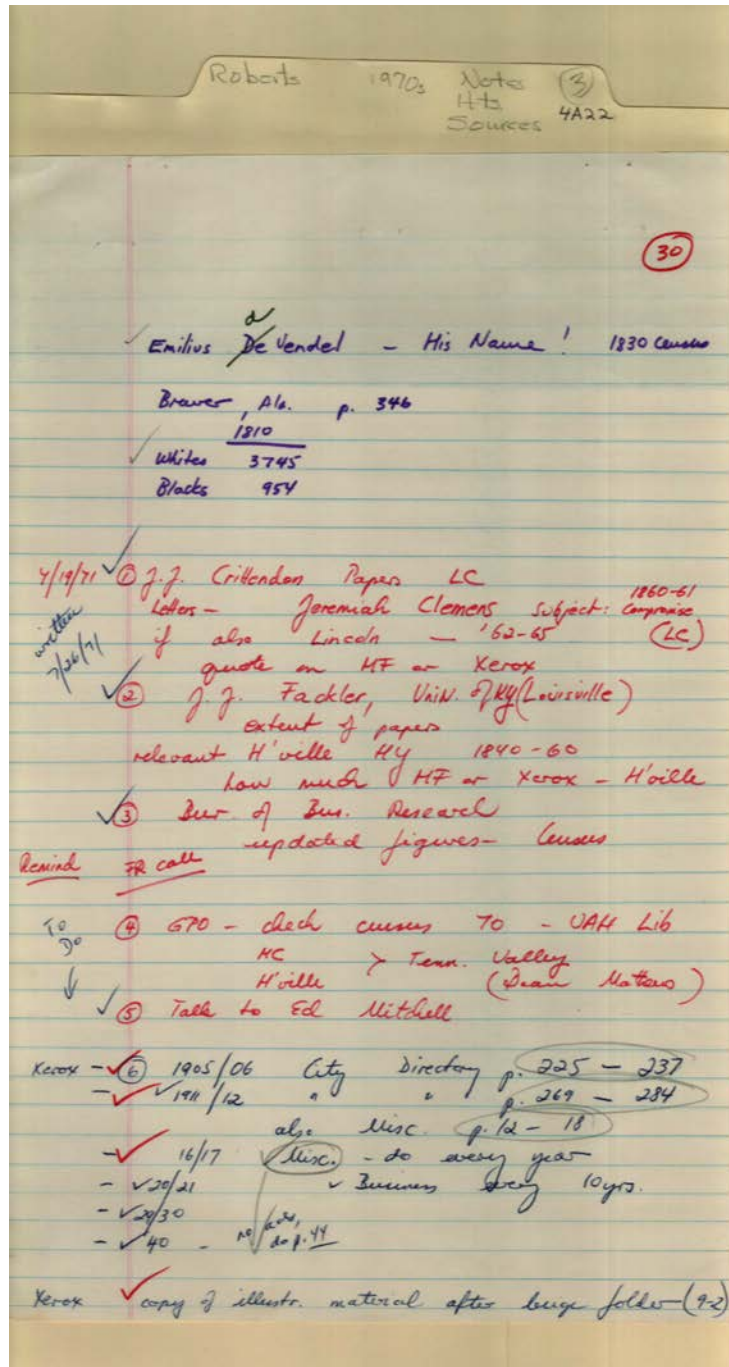 Roberts 1970s Notes (3)
Hts
Sources 4A22
30
d
Emilius De Vendel - His Name! 1830 Census
Brewer, Ala. p. 346
1810
Whites 3745
Blacks 954
7/19/71 ① J.J. Crittendon Papers LC
1860-61
Letters - Jeremiah Clemens subject: Compromise
written if also Lincoln - '62-65 (LC)
7/26/71
quote on MF or Xerox
② J.J. Fackler, Univ. of KY (Louisville)
extent of papers
relevant H'ville HY 1840-60
how much MF or Xerox - H'ville
③ Bur. of Bus. Research
updated figures - Census
Remind FR call
To Do ④ GPO - check census 70 - UAH Lib
MC > Tenn. Valley
H'ville (Dean Matthews)
⑤ Talk to Ed Mitchell
Xerox - ⑥ 1905/06 City Directory p. 225 - 237
- 1911/12 " " p. 269 - 284
also Misc. p. 12 - 18
- 16/17 Misc. - do every year
- 20/21 Business every 10 yrs.
- 29/30
- 40 - no ads,
do p. 44
Xerox copy of illustr. material after large folder - (9-2)